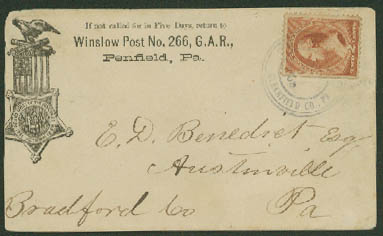 If not called for in Five Days, return to
Winslow Post No. 266, G.A.R.,
Penfield, Pa.
E. D. Benedict Esq
Austinville
Bradford Co
Pa